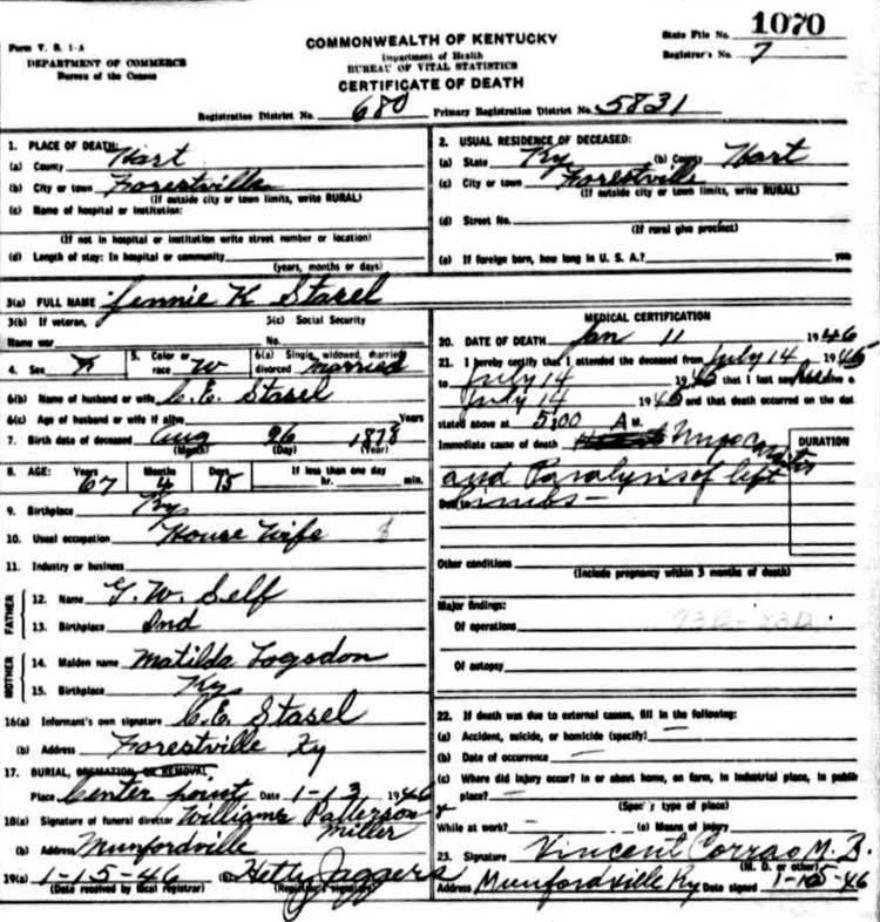 1070
State File No.
Form V. S. 1-A
COMMONWEALTH OF KENTUCKY
Registrar's No. 7
DEPARTMENT OF COMMERCE
Department of Health
Bureau of the Census
BUREAU OF VITAL STATISTICS
CERTIFICATE OF DEATH
Registration District No. 680 Primary Registration District No. 5831
1. PLACE OF DEATH:
(a) County Hart
(b) City or town Forestville
(If outside city or town limits, write RURAL)
(c) Name of hospital or institution:
(If not in hospital or institution write street number or location)
(d) Length of stay: In hospital or community
(years, months or days)
2. USUAL RESIDENCE OF DECEASED:
(a) State Ky (b) County Hart
(c) City or town Forestville
(If outside city or town limits, write RURAL)
(d) Street No.
(If rural give precinct)
(e) If foreign born, how long in U. S. A.? years
3(a) FULL NAME Jennie K Stasel
3(b) If veteran, 3(c) Social Security
Name war No.
4. Sex F 5. Color or race W 6(a) Single, widowed, married, divorced married
6(b) Name of husband or wife C.E. Stasel
6(c) Age of husband or wife if alive Years
7. Birth date of deceased Aug 26 1878
(Month) (Day) (Year)
8. AGE: Years Months Days If less than one day
67 4 15 hr. min.
9. Birthplace Ky
10. Usual occupation House Wife
11. Industry or business
FATHER
12. Name G. W. Self
13. Birthplace Ind
MOTHER
14. Maiden name Matilda Logsdon
15. Birthplace Ky
16(a) Informant's own signature C.E. Stasel
(b) Address Forestville Ky
17. BURIAL, CREMATION, OR REMOVAL
Place Center point Date 1-13 1946
18(a) Signature of funeral director Williams Patterson
Miller
(b) Address Munfordville
19(a) 1-15-46 (b) Hetty Jaggers
(Date received by local registrar) (Registrar's signature)
MEDICAL CERTIFICATION
20. DATE OF DEATH Jan 11 1946
21. I hereby certify that I attended the deceased from July 14 1945
to July 14 1945 that I last saw her alive o
July 14 1945 and that death occurred on the dat
stated above at 5:00 A M.
Immediate cause of death
DURATION
and Paralysis of left
Due to limbs -
Other conditions
(Include pregnancy within 3 months of death)
Major findings:
Of operations
Of autopsy
22. If death was due to external causes, fill in the following:
(a) Accident, suicide, or homicide (specify) —
(b) Date of occurrence —
(c) Where did injury occur? In or about home, on farm, in industrial place, in public
place? —
(Specify type of place)
While at work? — (e) Means of injury
23. Signature Vincent Corrao M. D.
(M. D. or other)
Address Munfordville Ky Date signed